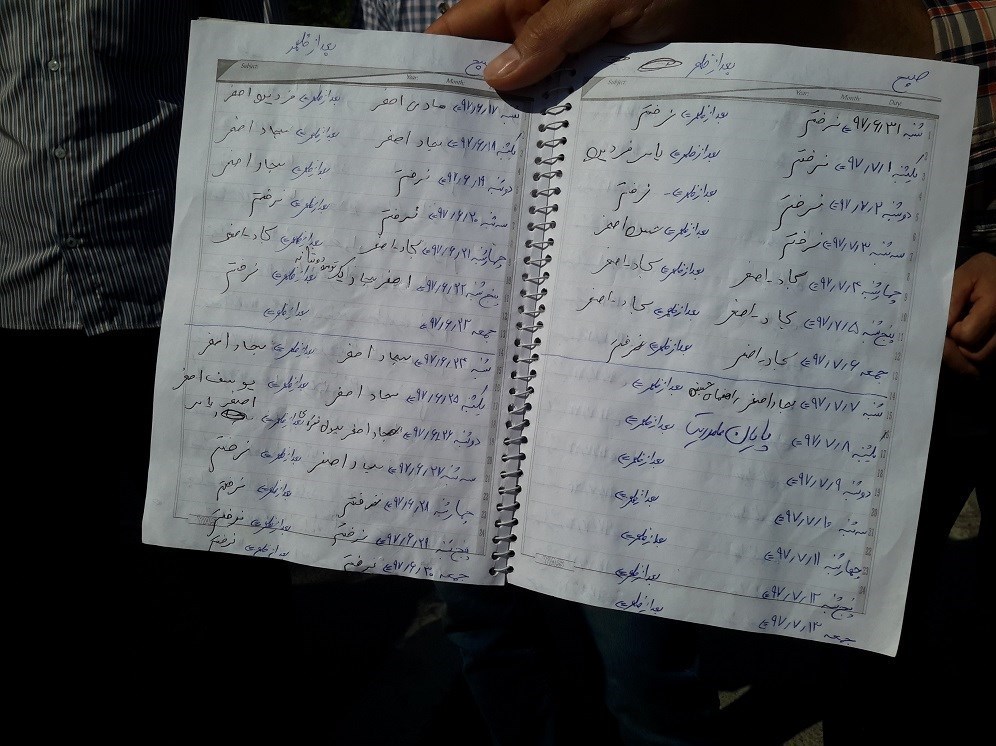 صبح بعدازظهر
Subject: Year: Month: Day:
شنبه ۹۷/۶/۳۱ ⇐ نرفتم بعدازظهر ⇐ نرفتم
یکشنبه ۹۷/۷/۱ ⇐ نرفتم بعدازظهر ⇐ یاسر فردین
دوشنبه ۹۷/۷/۲ ⇐ نرفتم بعدازظهر ⇐ نرفتم
سه‌شنبه ۹۷/۷/۳ ⇐ نرفتم بعدازظهر ⇐ اصغر
چهارشنبه ۹۷/۷/۴ ⇐ سجاد-اصغر بعدازظهر ⇐ سجاد-اصغر
پنج‌شنبه ۹۷/۷/۵ ⇐ سجاد-اصغر بعدازظهر ⇐ سجاد-اصغر
جمعه ۹۷/۷/۶ ⇐ سجاد-اصغر بعدازظهر ⇐ نرفتم
شنبه ۹۷/۷/۷ ⇐ سجاد اصغر بعدازظهر ⇐
یکشنبه ۹۷/۷/۸ پایان ماموریت بعدازظهر ⇐
دوشنبه ۹۷/۷/۹ ⇐ بعدازظهر ⇐
سه‌شنبه ۹۷/۷/۱۰ ⇐ بعدازظهر ⇐
چهارشنبه ۹۷/۷/۱۱ ⇐ بعدازظهر ⇐
پنج‌شنبه ۹۷/۷/۱۲ ⇐ بعدازظهر ⇐
جمعه ۹۷/۷/۱۳ ⇐ بعدازظهر ⇐
صبح بعدازظهر
Subject: Year: Month:
شنبه ۹۷/۶/۱۷ ⇐ هادی اصغر بعدازظهر ⇐ فردین اصغر
یکشنبه ۹۷/۶/۱۸ ⇐ سجاد اصغر بعدازظهر ⇐ سجاد اصغر
دوشنبه ۹۷/۶/۱۹ ⇐ نرفتم بعدازظهر ⇐ سجاد اصغر
سه‌شنبه ۹۷/۶/۲۰ ⇐ نرفتم بعدازظهر ⇐ نرفتم
چهارشنبه ۹۷/۶/۲۱ ⇐ سجاد-اصغر بعدازظهر ⇐ سجاد-اصغر
پنج‌شنبه ۹۷/۶/۲۲ ⇐ اصغر سجاد بعدازظهر ⇐ نرفتم
جمعه ۹۷/۶/۲۳ ⇐ بعدازظهر ⇐
شنبه ۹۷/۶/۲۴ ⇐ سجاد اصغر بعدازظهر ⇐ سجاد اصغر
یکشنبه ۹۷/۶/۲۵ ⇐ سجاد اصغر بعدازظهر ⇐ یوسف اصغر
دوشنبه ۹۷/۶/۲۶ ⇐ سجاد اصغر بعدازظهر ⇐ اصغر یاسر
سه‌شنبه ۹۷/۶/۲۷ ⇐ سجاد اصغر بعدازظهر ⇐ نرفتم
چهارشنبه ۹۷/۶/۲۸ ⇐ نرفتم بعدازظهر ⇐ نرفتم
پنج‌شنبه ۹۷/۶/۲۹ ⇐ نرفتم بعدازظهر ⇐ نرفتم
جمعه ۹۷/۶/۳۰ ⇐ نرفتم بعدازظهر ⇐ نرفتم